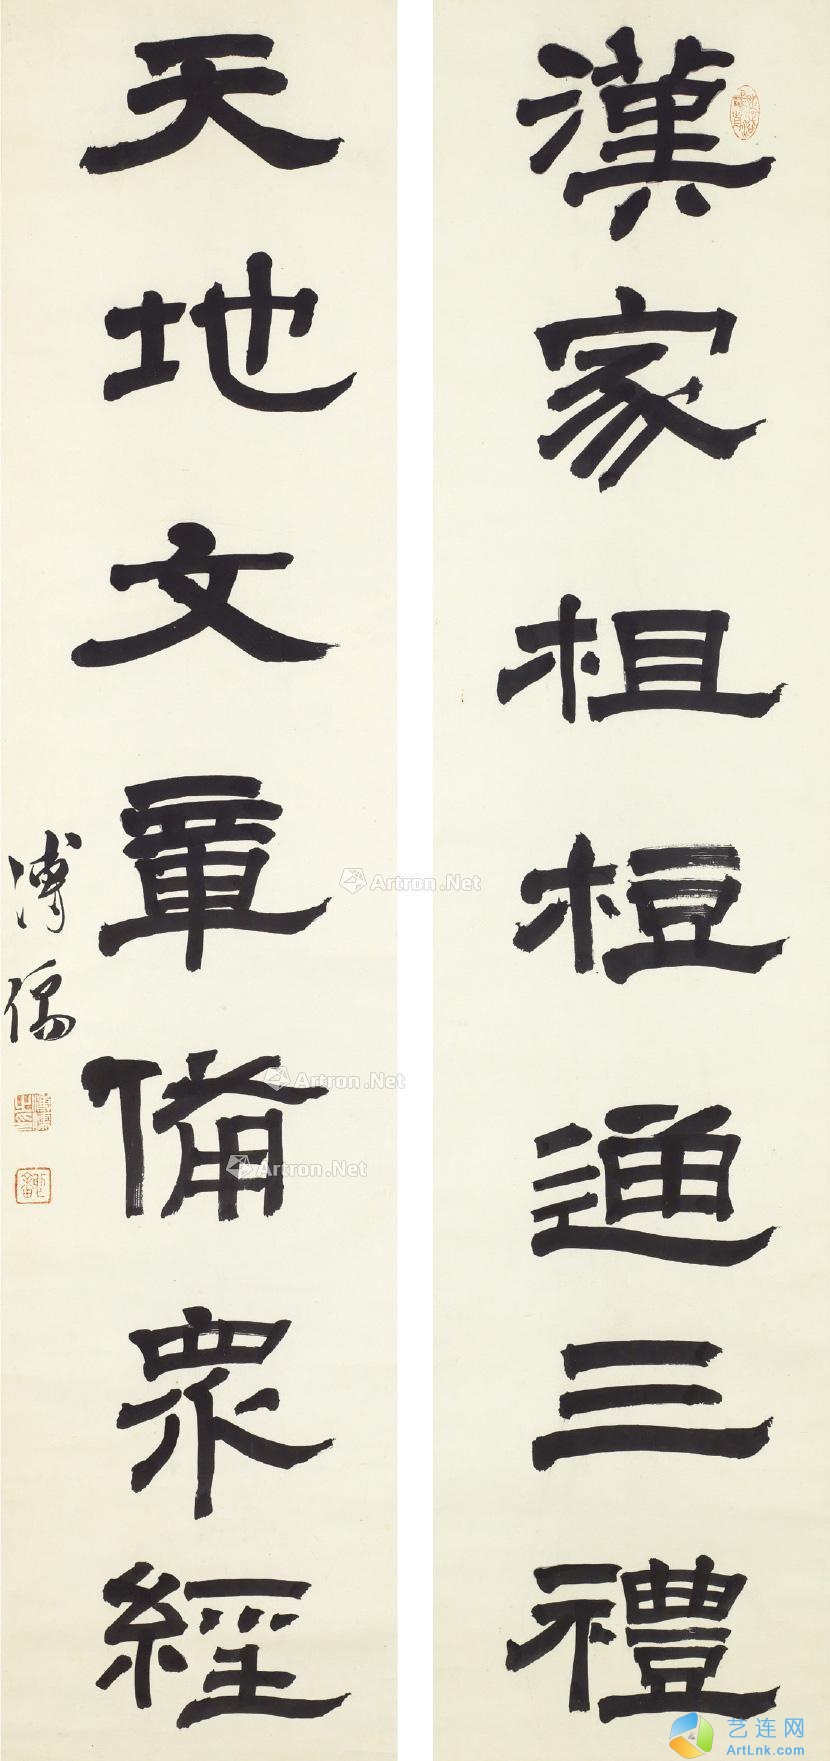 漢家柤梪通三禮
天地文章備眾經
溥儒
Artron.Net
Artron.Net
Artron.Net
艺连网
ArtLnk.com